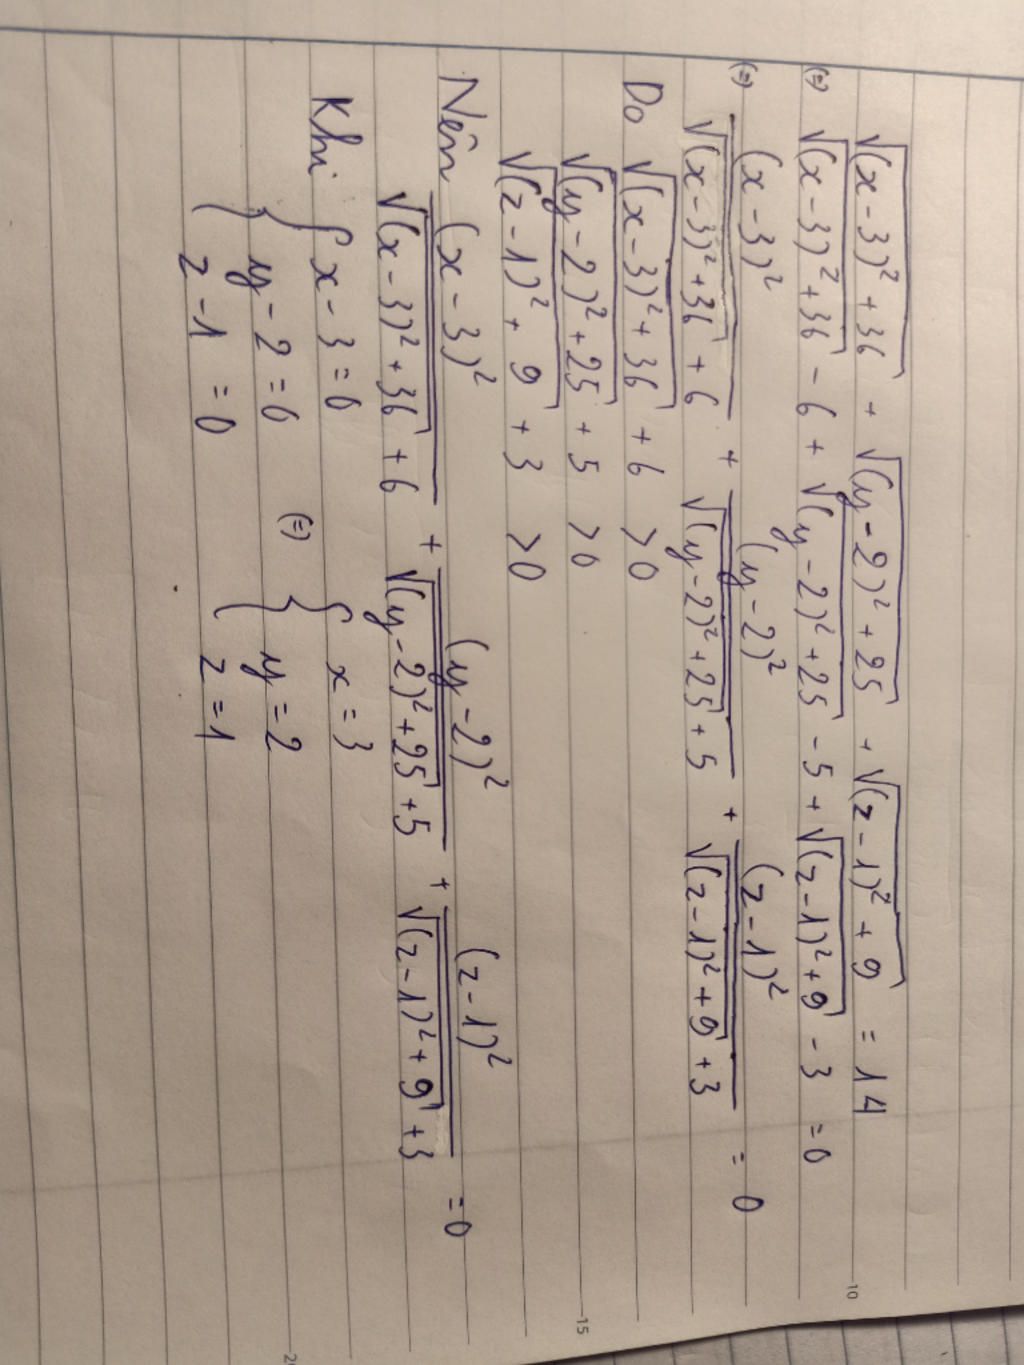 √((x-3)²+36) + √((y-2)²+25) + √((z-1)²+9) = 14
(=) √((x-3)²+36) - 6 + √((y-2)²+25) - 5 + √((z-1)²+9) - 3 = 0
(=) (x-3)²/(√((x-3)²+36) + 6) + (y-2)²/(√((y-2)²+25) + 5) + (z-1)²/(√((z-1)²+9) + 3) = 0
Do √((x-3)²+36) + 6 > 0
√((y-2)²+25) + 5 > 0
√((z-1)²+9) + 3 > 0
Nên (x-3)²/(√((x-3)²+36) + 6) + (y-2)²/(√((y-2)²+25) + 5) + (z-1)²/(√((z-1)²+9) + 3) = 0
Khi { x-3=0 (=) { x=3
y-2=0 y=2
z-1=0 z=1
10
15
20